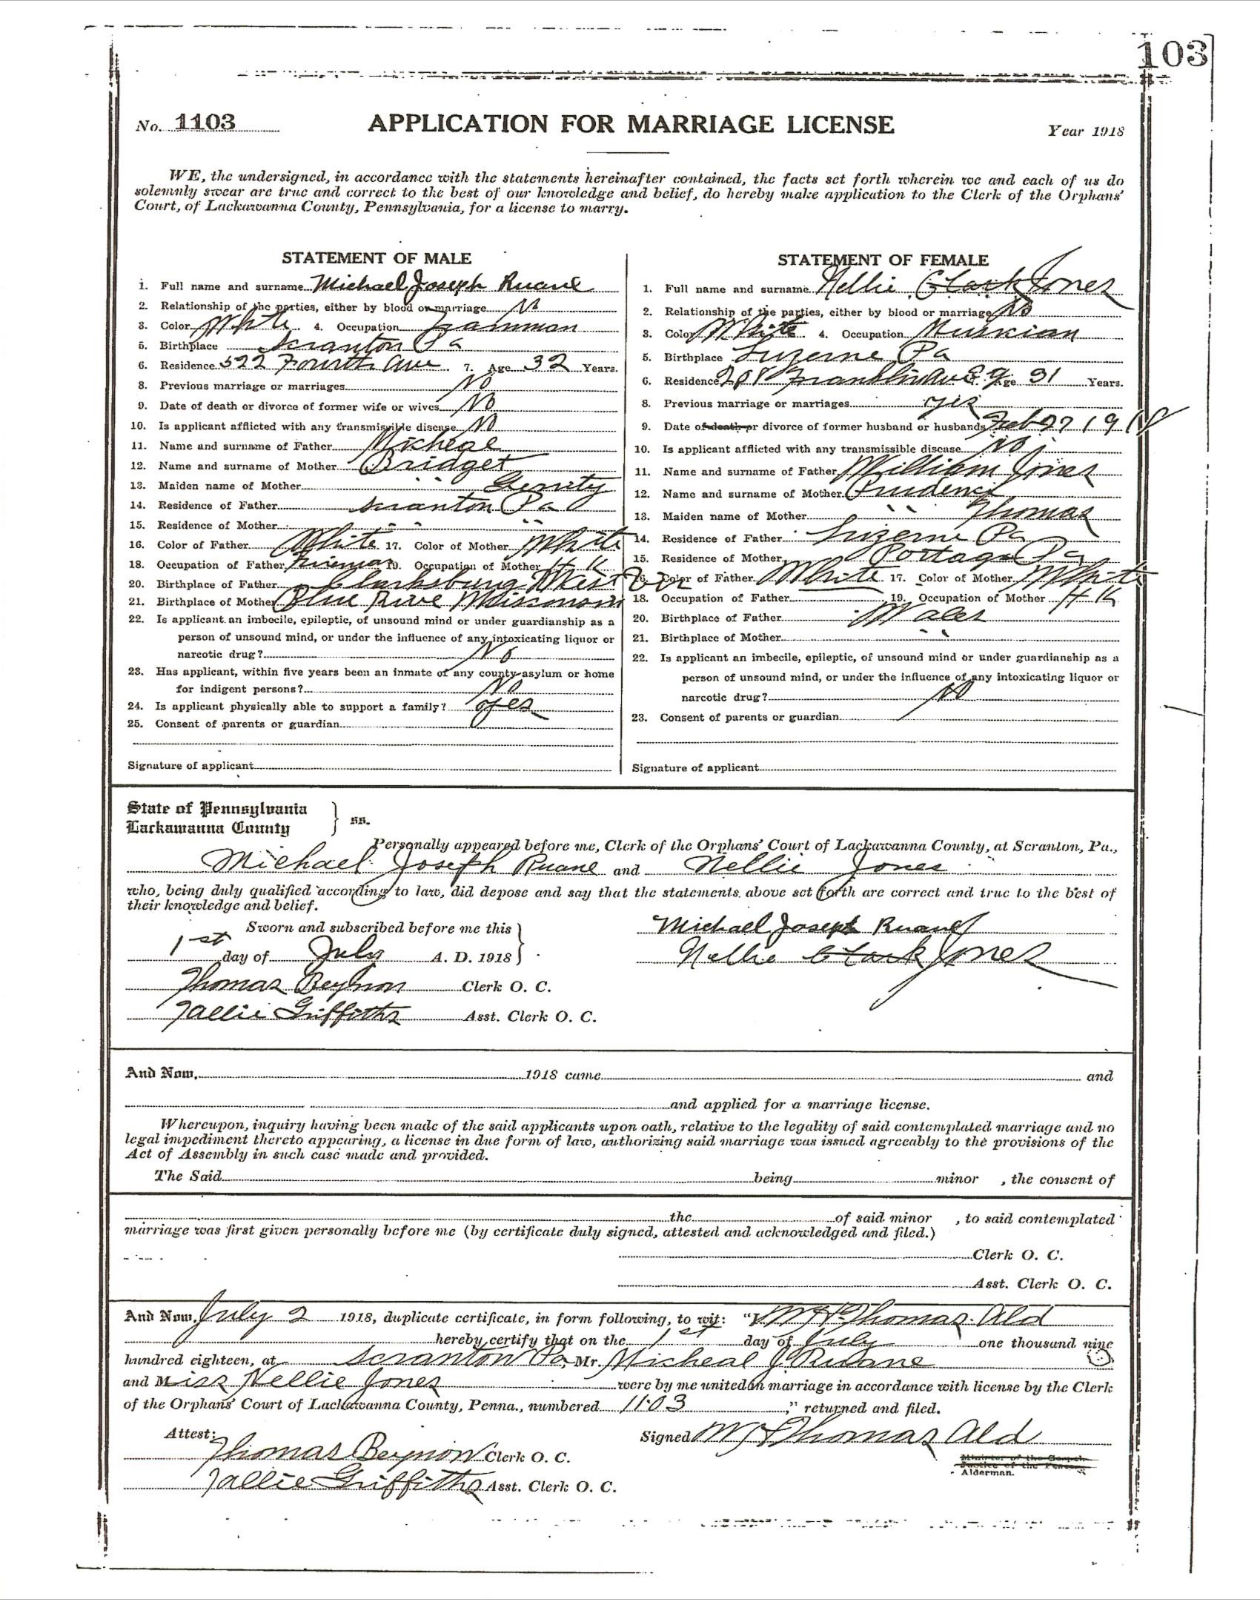 103
No. 1103 APPLICATION FOR MARRIAGE LICENSE Year 1918
WE, the undersigned, in accordance with the statements hereinafter contained, the facts set forth wherein we and each of us do
solemnly swear are true and correct to the best of our knowledge and belief, do hereby make application to the Clerk of the Orphans'
Court, of Lackawanna County, Pennsylvania, for a license to marry.
STATEMENT OF MALE
1. Full name and surname Michael Joseph Ruane
2. Relationship of the parties, either by blood or marriage No
3. Color White 4. Occupation
5. Birthplace Scranton Pa
6. Residence 522 Fourth Ave 7. Age 32 Years.
8. Previous marriage or marriages No
9. Date of death or divorce of former wife or wives No
10. Is applicant afflicted with any transmissible disease No
11. Name and surname of Father Micheal
12. Name and surname of Mother Bridget
13. Maiden name of Mother " " Gerrity
14. Residence of Father Scranton Pa
15. Residence of Mother " "
16. Color of Father White 17. Color of Mother White
18. Occupation of Father Fireman 19. Occupation of Mother H K
20. Birthplace of Father Clarksburg West Va
21. Birthplace of Mother Blue River Wisconsin
22. Is applicant an imbecile, epileptic, of unsound mind or under guardianship as a
person of unsound mind, or under the influence of any intoxicating liquor or
narcotic drug? No
23. Has applicant, within five years been an inmate of any county asylum or home
for indigent persons? No
24. Is applicant physically able to support a family? yes
25. Consent of parents or guardian
Signature of applicant
STATEMENT OF FEMALE
1. Full name and surname Nellie Clark Jones
2. Relationship of the parties, either by blood or marriage No
3. Color White 4. Occupation Musician
5. Birthplace Luzerne Pa
6. Residence 208 Franklin Ave Age 31 Years.
8. Previous marriage or marriages yes
9. Date of death or divorce of former husband or husbands Feb 27 1918
10. Is applicant afflicted with any transmissible disease No
11. Name and surname of Father William Jones
12. Name and surname of Mother Prudence
13. Maiden name of Mother " " Thomas
14. Residence of Father Luzerne Pa
15. Residence of Mother Portage Pa
16. Color of Father White 17. Color of Mother White
18. Occupation of Father 19. Occupation of Mother H K
20. Birthplace of Father Wales
21. Birthplace of Mother " "
22. Is applicant an imbecile, epileptic, of unsound mind or under guardianship as a
person of unsound mind, or under the influence of any intoxicating liquor or
narcotic drug? No
23. Consent of parents or guardian
Signature of applicant
State of Pennsylvania
Lackawanna County } ss.
Personally appeared before me, Clerk of the Orphans' Court of Lackawanna County, at Scranton, Pa.,
Michael Joseph Ruane and Nellie Jones
who, being duly qualified according to law, did depose and say that the statements above set forth are correct and true to the best of
their knowledge and belief.
Sworn and subscribed before me this
1st day of July A. D. 1918
Michael Joseph Ruane
Nellie Clark Jones
Thomas Beynon Clerk O. C.
Tallie Griffiths Asst. Clerk O. C.
And Now, 1918 came and
and applied for a marriage license.
Whereupon, inquiry having been made of the said applicants upon oath, relative to the legality of said contemplated marriage and no
legal impediment thereto appearing, a license in due form of law, authorizing said marriage was issued agreeably to the provisions of the
Act of Assembly in such case made and provided.
The Said being minor , the consent of
the of said minor , to said contemplated
marriage was first given personally before me (by certificate duly signed, attested and acknowledged and filed.)
Clerk O. C.
Asst. Clerk O. C.
And Now, July 2 1918, duplicate certificate, in form following, to wit: "I, Thomas Ald
hereby certify that on the 1st day of July one thousand nine
hundred eighteen, at Scranton Pa Mr. Micheal J Ruane
and Miss Nellie Jones were by me united in marriage in accordance with license by the Clerk
of the Orphans' Court of Lackawanna County, Penna., numbered 1103 ," returned and filed.
Attest:
Thomas Beynon Clerk O. C.
Tallie Griffiths Asst. Clerk O. C.
Signed Thomas Ald
Minister of the Gospel
Justice of the Peace
Alderman.